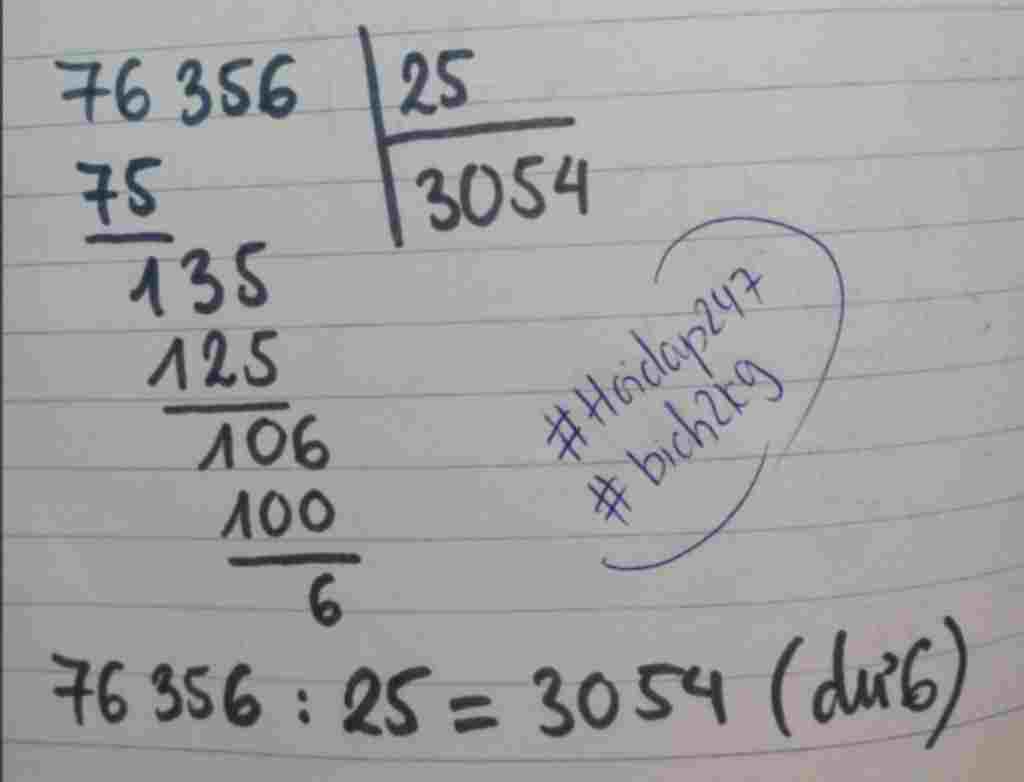 76 356 25
75 3054
135
125
106
100
6
#Hoidap247
# bich2kg
76 356 : 25 = 3054 (dư 6)